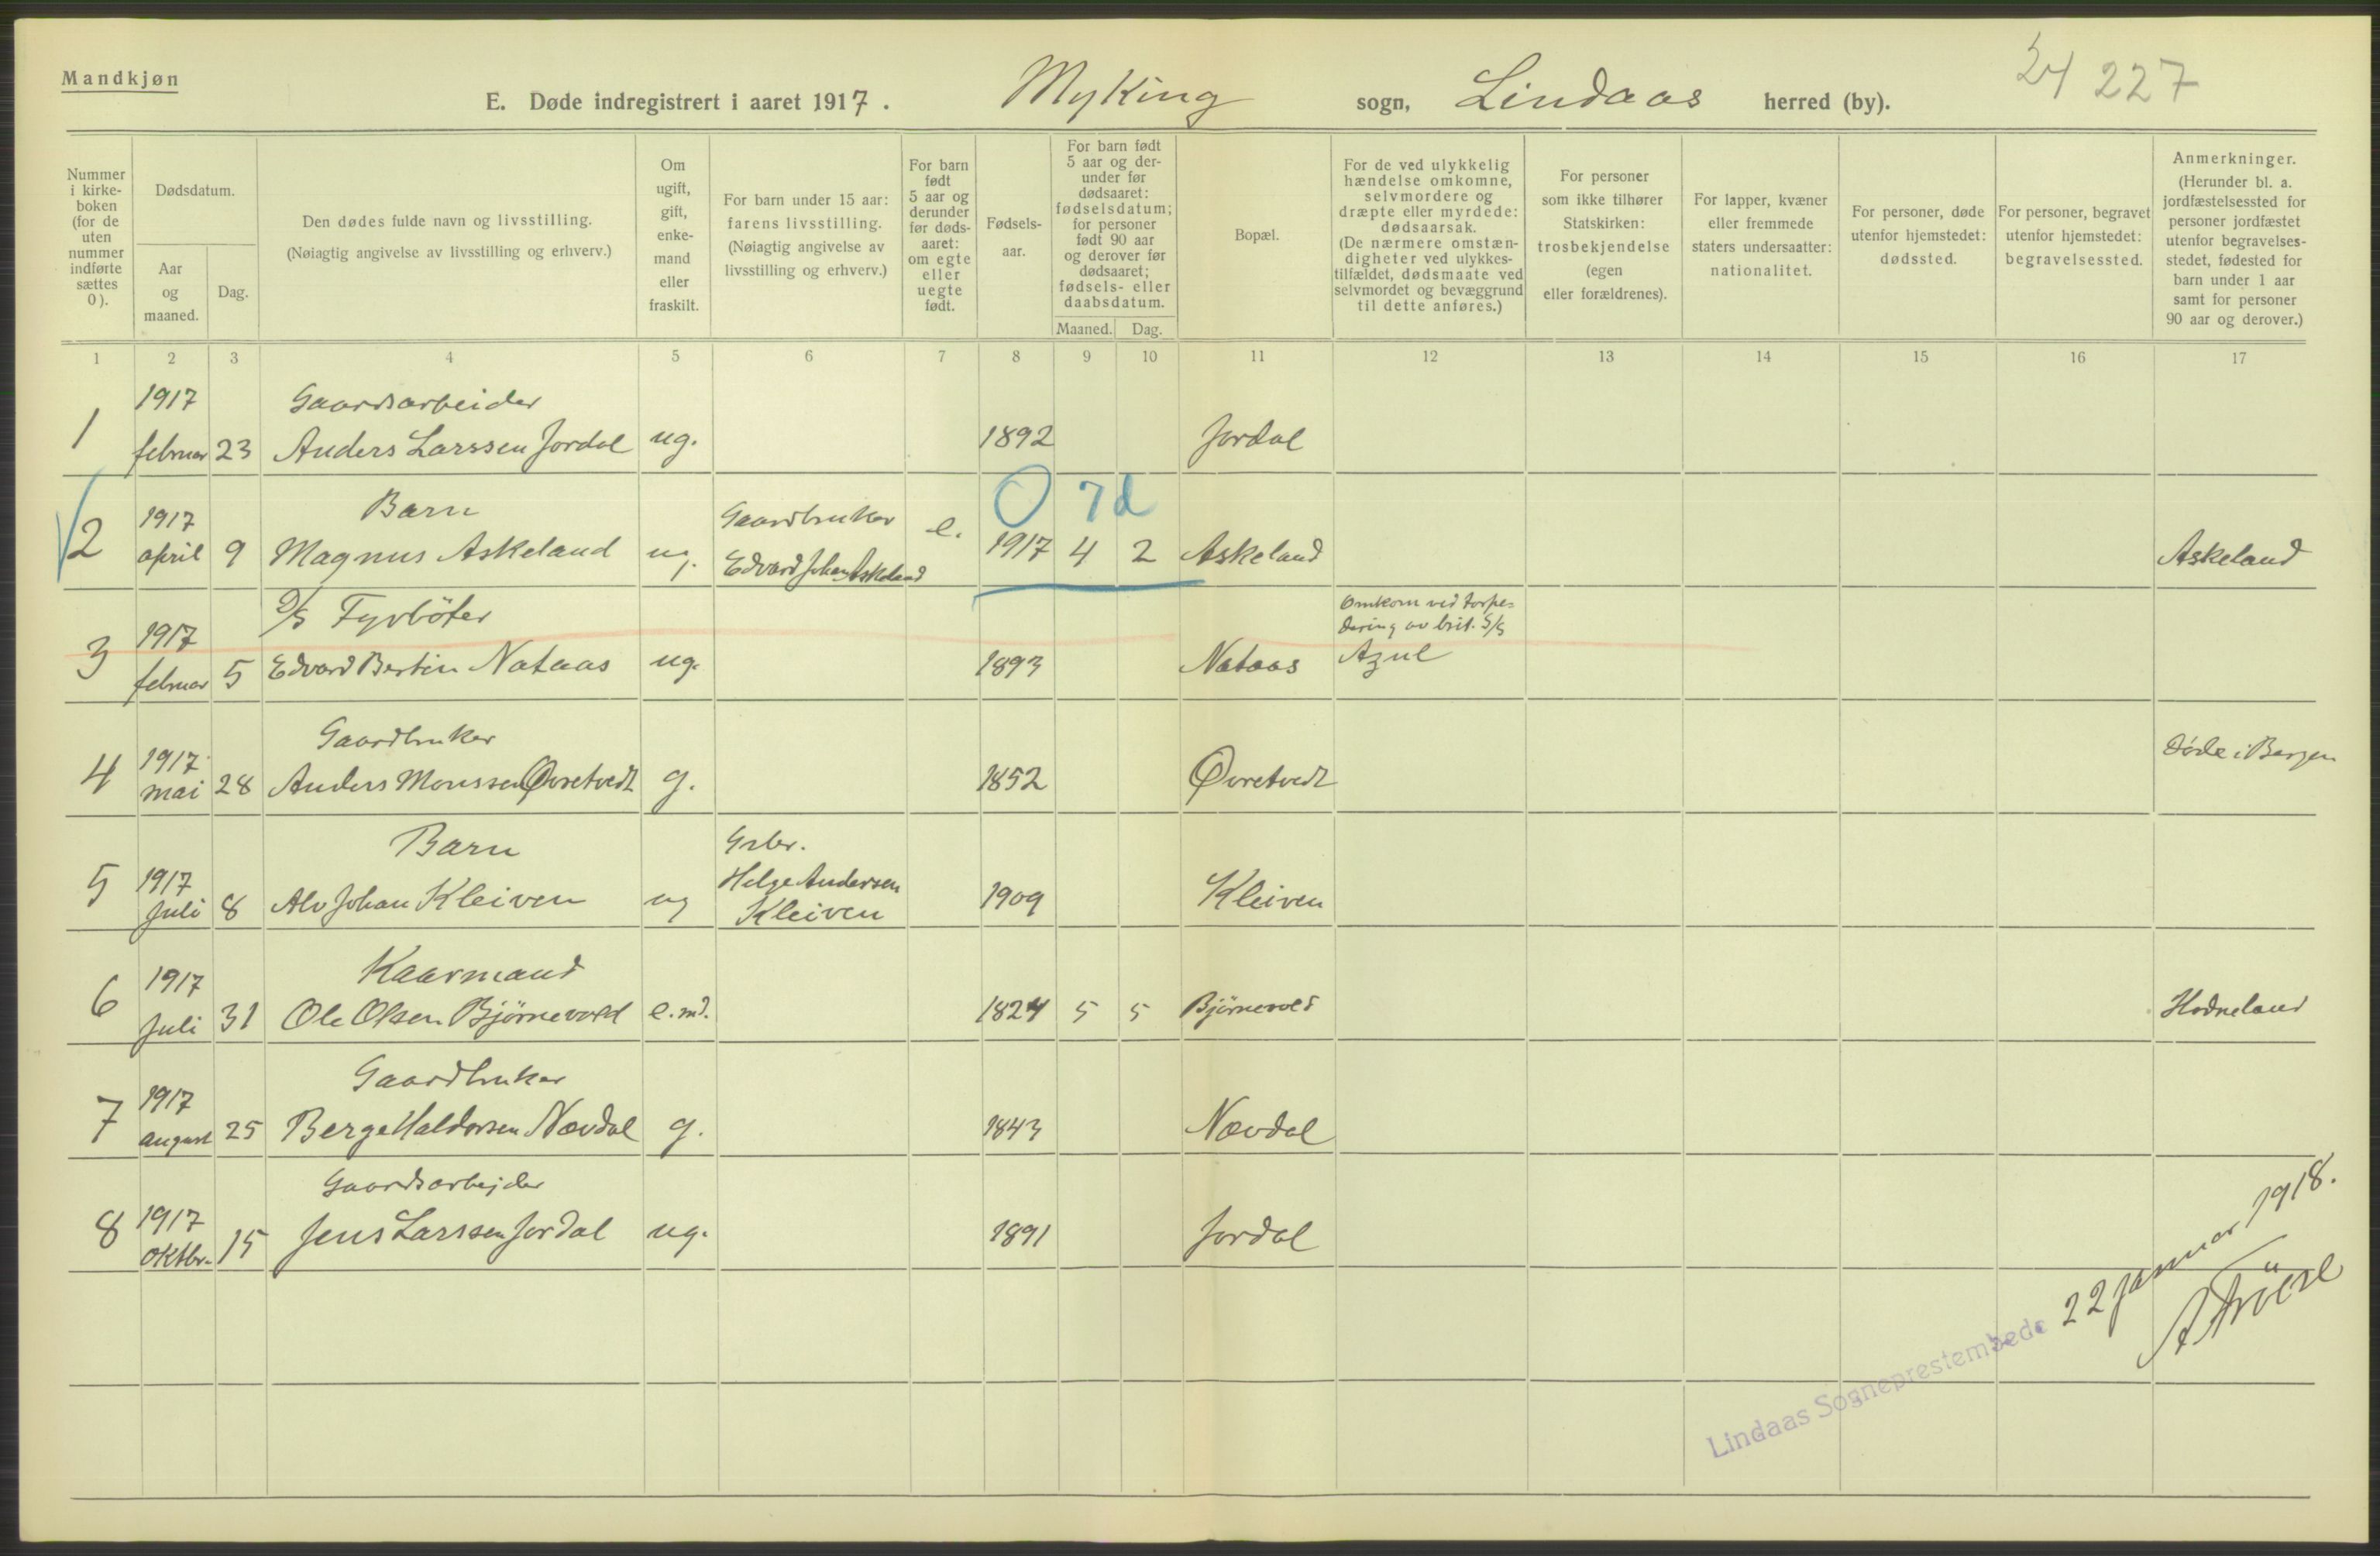 Mandkjøn
E. Døde indregistrert i aaret 1917. Myking sogn, Lindaas herred (by).
227
Nummer i kirkeboken (for de uten nummer indførte sættes 0).
Dødsdatum.
Aar og maaned.
Dag.
Den dødes fulde navn og livsstilling.
(Nøiagtig angivelse av livsstilling og erhverv.)
Om ugift, gift, enkemand eller fraskilt.
For barn under 15 aar: farens livsstilling. (Nøiagtig angivelse av livsstilling og erhverv.)
For barn født 5 aar og derunder før dødsaaret: om egte eller uegte født.
Fødselsaar.
For barn født 5 aar og derunder før dødsaaret: fødselsdatum; for personer født 90 aar og derover før dødsaaret; fødsels- eller daabsdatum.
Maaned. Dag.
Bopæl.
For de ved ulykkelig hændelse omkomne, selvmordere og dræpte eller myrdede: dødsaarsak. (De nærmere omstændigheter ved ulykkestilfældet, dødsmaate ved selvmordet og bevæggrund til dette anføres.)
For personer som ikke tilhører Statskirken: trosbekjendelse (egen eller forældrenes).
For lapper, kvæner eller fremmede staters undersaatter: nationalitet.
For personer, døde utenfor hjemstedet: dødssted.
For personer, begravet utenfor hjemstedet: begravelsessted.
Anmerkninger. (Herunder bl. a. jordfæstelsessted for personer jordfæstet utenfor begravelsesstedet, fødested for barn under 1 aar samt for personer 90 aar og derover.)
1 2 3 4 5 6 7 8 9 10 11 12 13 14 15 16 17
1917 Gaardsarbeider
1 februar 23 Anders Larssen Jordal ug. 1892 Jordal
0 7d
1917 Barn Gaardbruker e.
2 april 9 Magnus Askeland ug. Edvard Johan Askeland 1917 4 2 Askeland Askeland
D/S Fyrbøter Omkom ved torpe-
1917 dering av brit. S/S
3 februar 5 Edvard Bertin Nataas ug. 1893 Nataas Azul
1917 Gaardbruker
4 mai 28 Anders Monssen Øvretvedt g. 1852 Øvretvedt Døde i Bergen
Barn Grbr.
1917 Helge Andersen
5 Juli 8 Alv Johan Kleiven ug Kleiven 1909 Kleiven
1917 Kaarmand
6 Juli 31 Ole Olsen Bjørnevold e.md. 1824 5 5 Bjørnevold Hodneland
1917 Gaardbruker
7 august 25 Berge Haldorsen Nævdal g. 1843 Nævdal
1917 Gaardsarbejder
8 Oktbr. 15 Jens Larssen Jordal ug. 1891 Jordal
Lindaas Sogneprestembede 22 januar 1918.